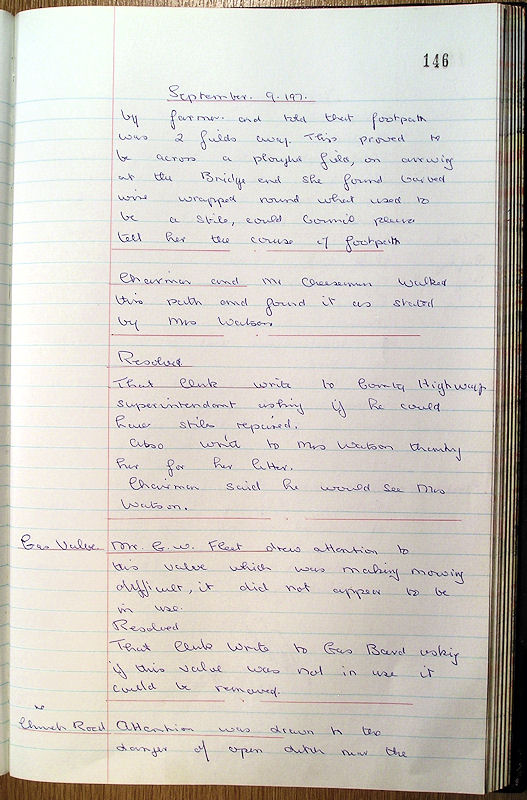 146
September. 9. 197.
by farmer and told that footpath
was 2 fields away. This proved to
be across a ploughd field, on arriving
at the Bridge end she found barbed
wire wrapped round what used to
be a stile, could Council please
tell her the course of footpath
Chairman and Mr Cheeseman walked
this path and found it as stated
by Mrs Watson
Resolved
That Clerk write to County Highway
Superintendant asking if he could
have stile repaired.
Also write to Mrs Watson thanking
her for her letter.
Chairman said he would see Mrs
Watson.
Gas Valve. Mr. G. W. Fleet drew attention to
this valve which was making mowing
difficult, it did not appear to be
in use.
Resolved
That Clerk write to Gas Board asking
if this valve was not in use it
could be removed.
Church Road Attention was drawn to the
danger of open ditch near the